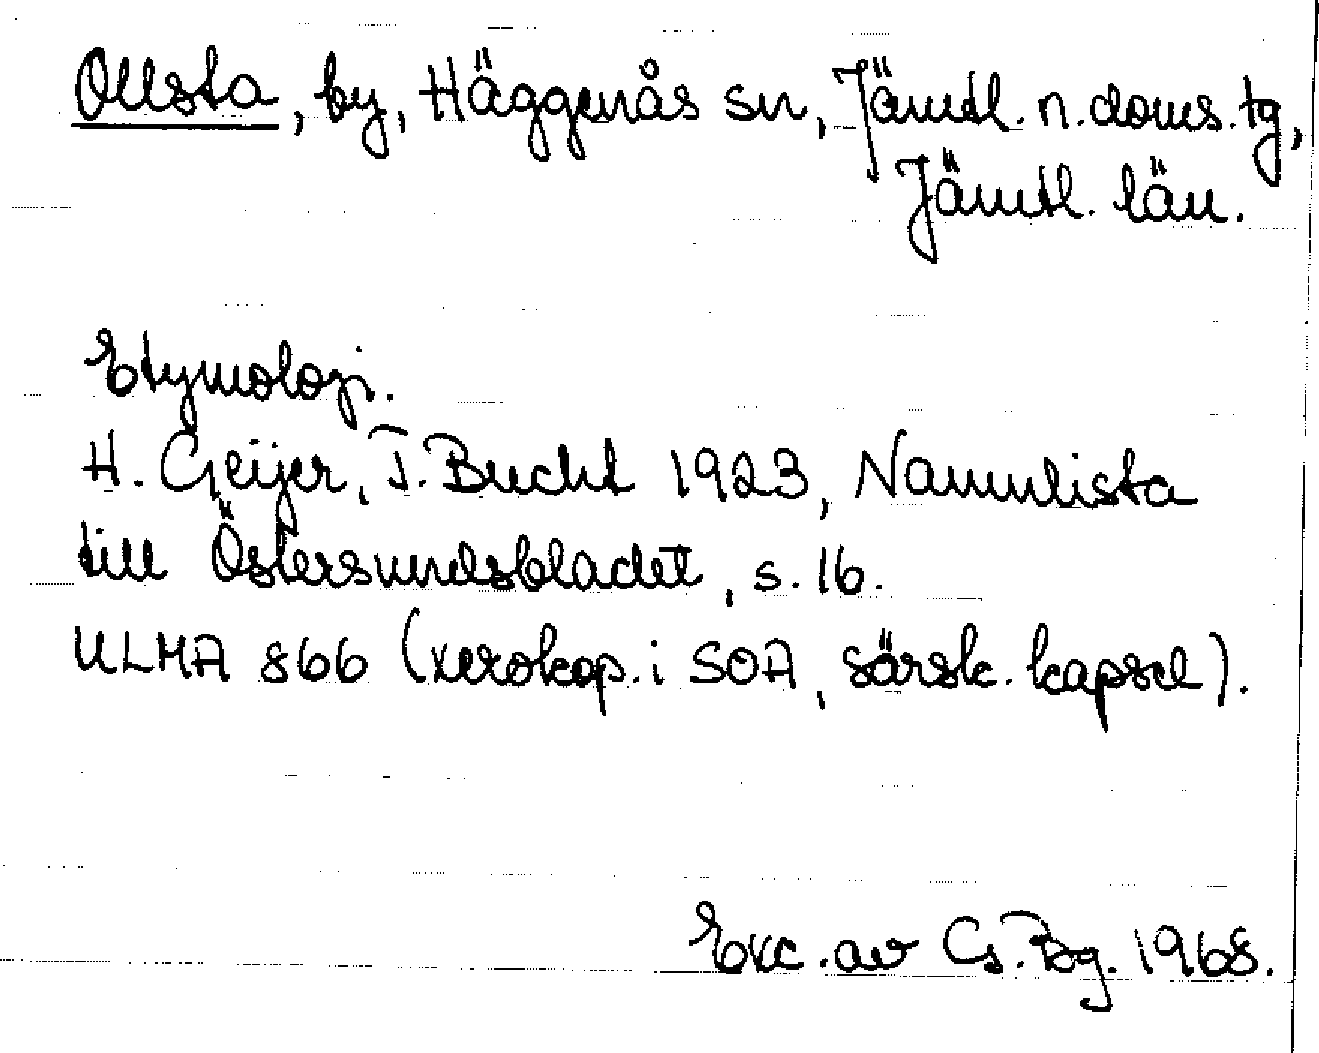 Ollsta, by, Häggenås sn, Jämtl. n. doms. tg,
Jämtl. län.
Etymologi.
H. Geijer, T. Bucht 1923, Namnlista
till Östersundsbladet, s. 16.
ULMA 866 (xerokop. i SOA, särsk. kapsel).
Exc. av G. Bg. 1968.